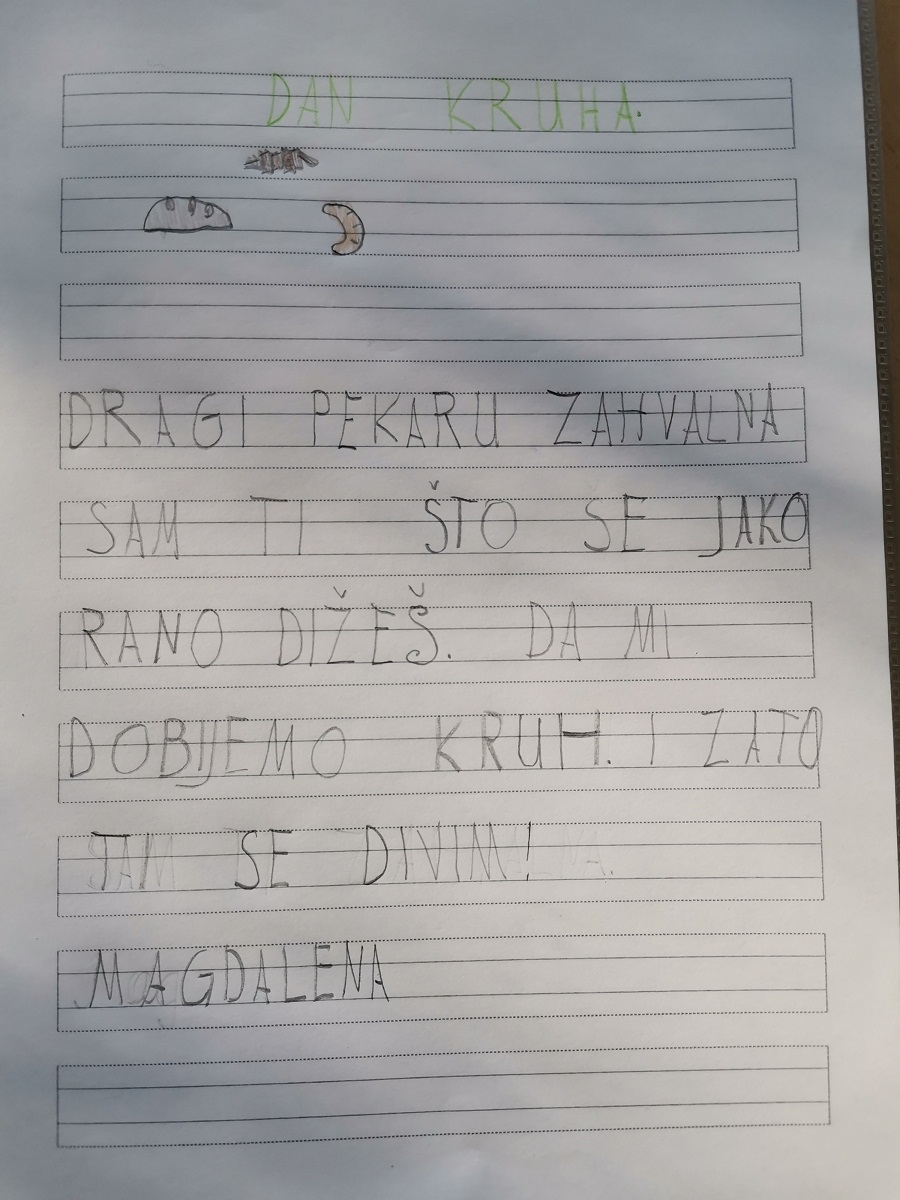 DAN KRUHA.
DRAGI PEKARU ZAHVALNA
SAM TI ŠTO SE JAKO
RANO DIŽEŠ. DA MI
DOBIJEMO KRUH. I ZATO
TAM SE DIVIM!
MAGDALENA